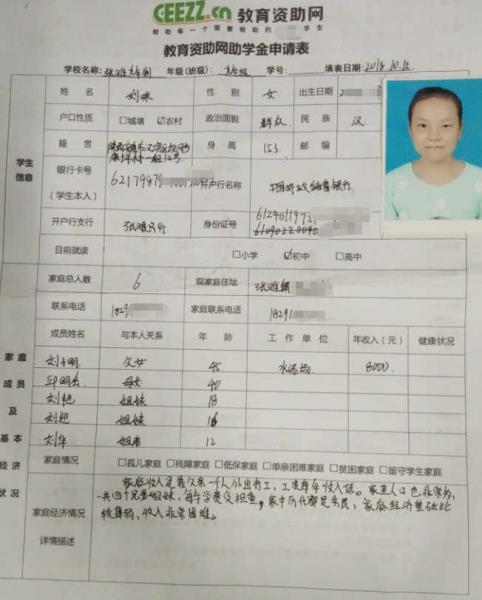 CEEZZ.cn 教育资助网
帮助每一个需要帮助的
教育资助网助学金申请表
学校名称: 张滩 年级(班级): 学号: 填表日期: 2018.10.12
姓名 刘咪 性别 女 出生日期 2
户口性质 □城填 ☑农村 政治面貌 群众 民族 汉
籍贯 身高 153 邮编
银行卡号 62179879 开户行名称 中国邮政储蓄银行
(学生本人)
学生
信息
开户行支行 张滩支行 身份证号 612401197
目前就读 □小学 ☑初中 □高中
家庭总人数 6 现家庭住址 张滩镇
联系电话 182 家庭联系电话 18291
成员姓名 与本人关系 年龄 工作单位 年收入(元) 健康状况
父女 45 8000
邱明 母女 42
刘艳 姐妹 18
刘迎 姐妹 16
刘华 姐弟 12
家庭
成员
及
基本
经济
状况
家庭情况 □孤儿家庭 □残障家庭 □低保家庭 □单亲困难家庭 □贫困家庭 □留守学生家庭
家庭经济情况
详情描述
家庭收入是靠父亲一个人外出务工,工资年收入低。家里人口也非常多,
一共四个兄弟姐妹,每年学费负担重,家中历代都是农民,家庭经济基础比
较薄弱,收入非常困难。